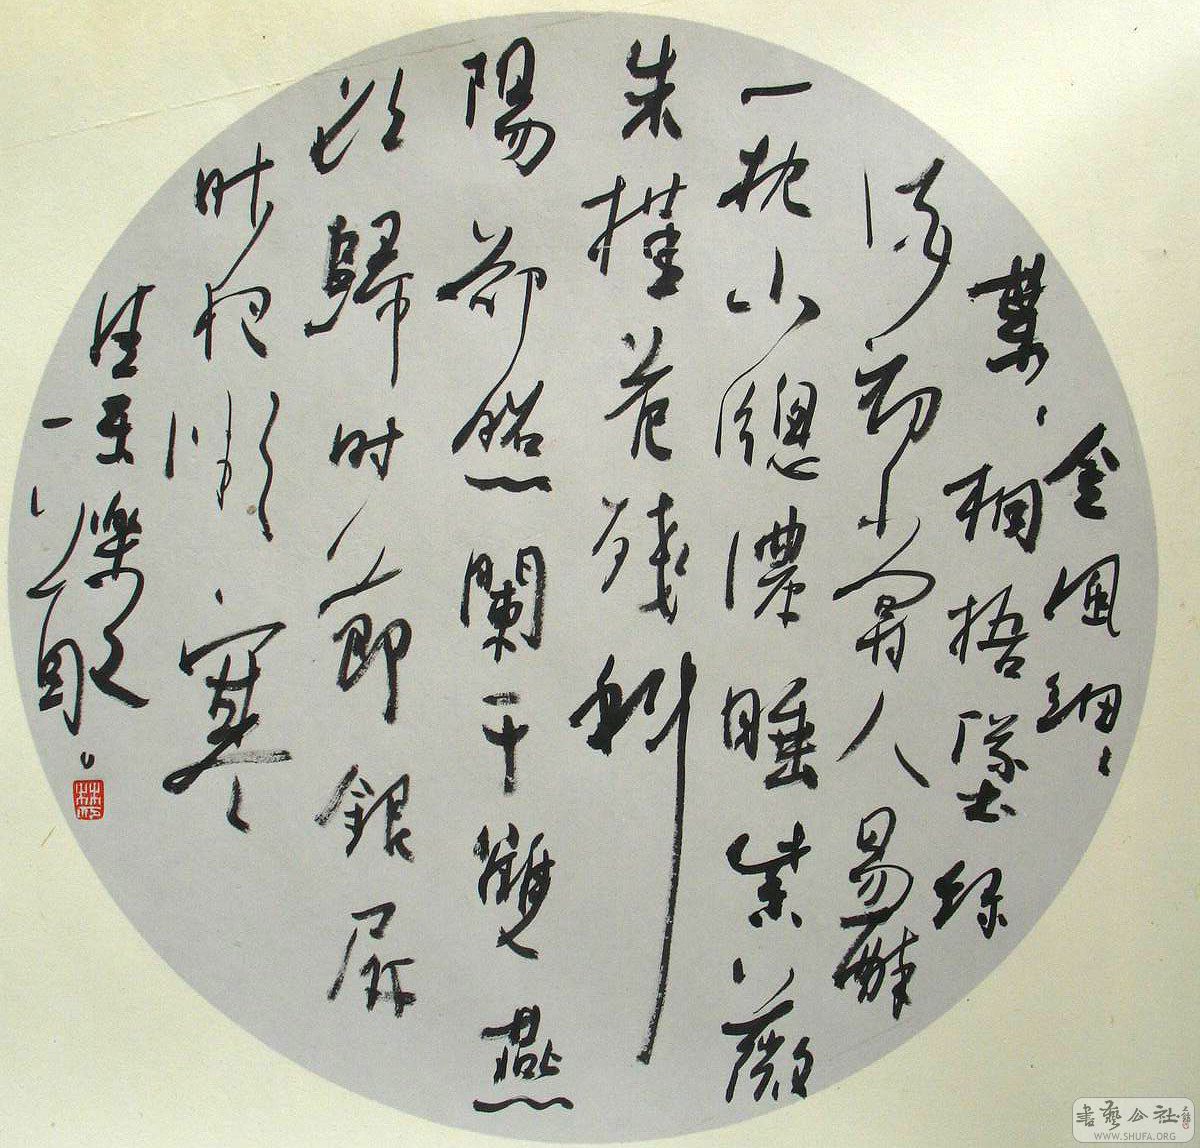 金風細〻
葉〻桐梧墜綠
酒初嘗人易醉
一枕小牕濃睡紫薇
朱槿花殘斜
陽却照闌干雙燕
欲歸时節銀屏
昨夜微寒
書藝公社
WWW.SHUFA.ORG